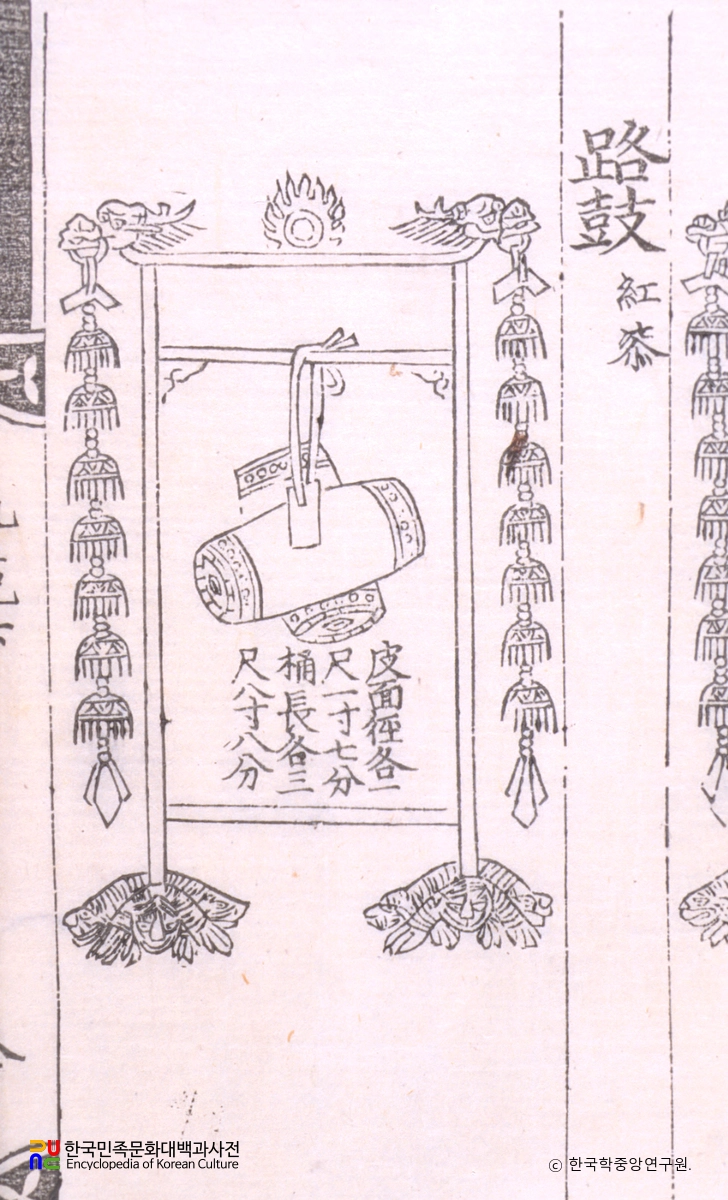 路鼓
紅漆
皮面徑各一
尺一寸七分
桶長各三
尺八寸八分
한국민족문화대백과사전
Encyclopedia of Korean Culture
ⓒ 한국학중앙연구원.